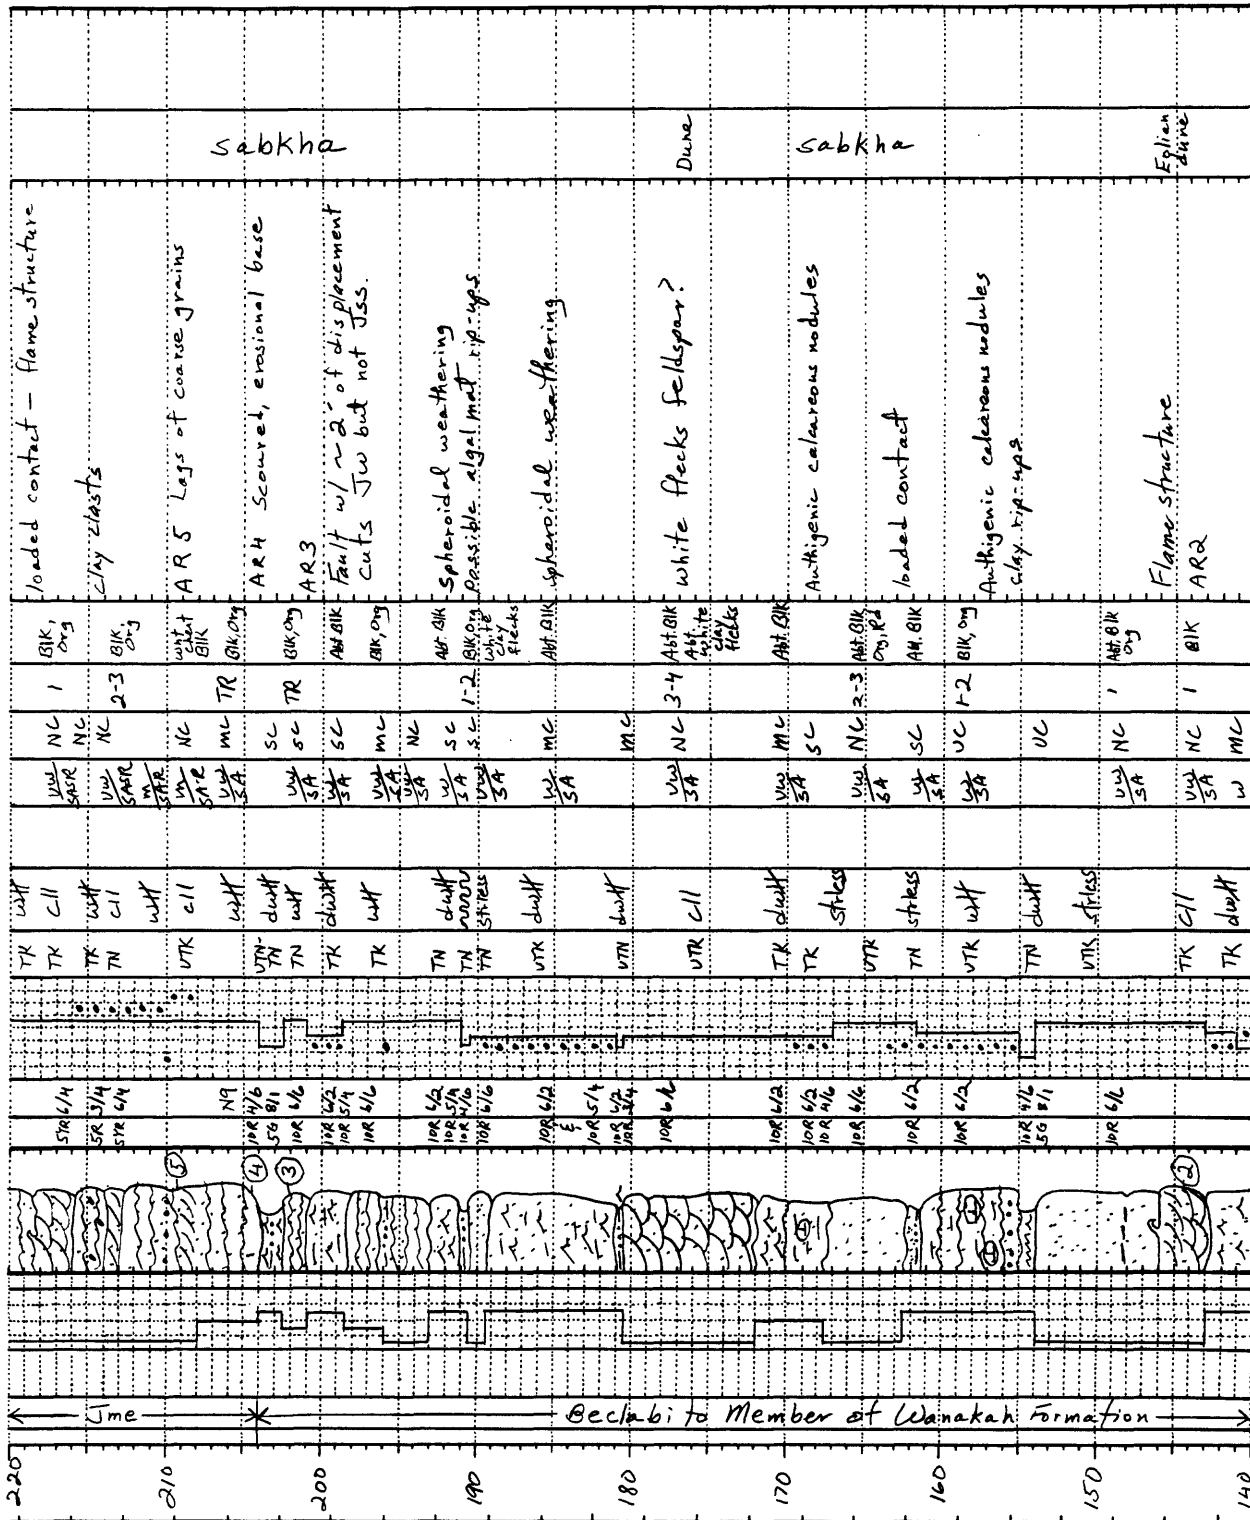 sabkha
Dune
sabkha
Eolian
dune
loaded contact — flame structure
Clay clasts
AR5 Lags of coarse grains
AR4 Scoured, erosional base
AR3
Fault w/ ~2' of displacement
cuts Jw but not Jss.
Spheroidal weathering
Possible algal mat rip-ups
Spheroidal weathering
White flecks feldspar?
Authigenic calcareous nodules
loaded contact
Authigenic calcareous nodules
Clay rip-ups
Flame structure
AR2
Blk,
Org
Blk,
Org
Wht
chert
Blk
Blk,Org
Blk,Org
Abt.Blk
Blk,Org
Abt.Blk
Blk,Org
White
clay
flecks
Abt.Blk
Abt.Blk
Abt.
White
clay
flecks
Abt.Blk
Abt.Blk
Org,Rd
Abt.Blk
Blk,Org
Abt.Blk
Org
Blk
1
2-3
TR
TR
1-2
3-4
2-3
1-2
1
1
NC
NC
NC
NC
MC
SC
SC
SC
MC
NC
SC
SC
MC
MC
NC
MC
SC
NC
SC
VC
VC
NC
NC
MC
VW
SASR
VW
SASR
M
SA-R
M
SA-R
VW
SA
VW
SA
W
SA
VW
SA
VW
SA
W
SA
VW
SA
W
SA
VW
SA
VW
SA
VW
SA
W
SA
W
SA
VW
SA
VW
SA
W
wtf
cll
wtf
cll
wtf
cll
wtf
dwtf
wtf
dwtf
wtf
dwtf
strless
dwtf
dwtf
cll
dwtf
strless
strless
wtf
dwtf
strless
cll
dwtf
TK
TK
TK
TN
VTK
VTN-
TN
TN
TK
TK
TN
TN
TN
VTK
VTN
VTK
TK
TK
VTK
TN
VTK
TN
VTK
TK
TK
5YR 6/4
5R 3/4
5YR 6/4
N9
10R 4/6
5G 8/1
10R 6/6
10R 6/2
10R 5/4
10R 6/6
10R 6/2
10R 5/4
10R 4/6
10R 6/6
10R 6/2
&
10R 5/4
10R 6/2
10R 3/4
10R 6/6
10R 6/2
10R 6/2
10R 4/6
10R 6/6
10R 6/2
10R 6/2
10R 4/6
5G 8/1
10R 6/6
5
4
3
2
Jme
Beclabito Member of Wanakah Formation
220
210
200
190
180
170
160
150
140